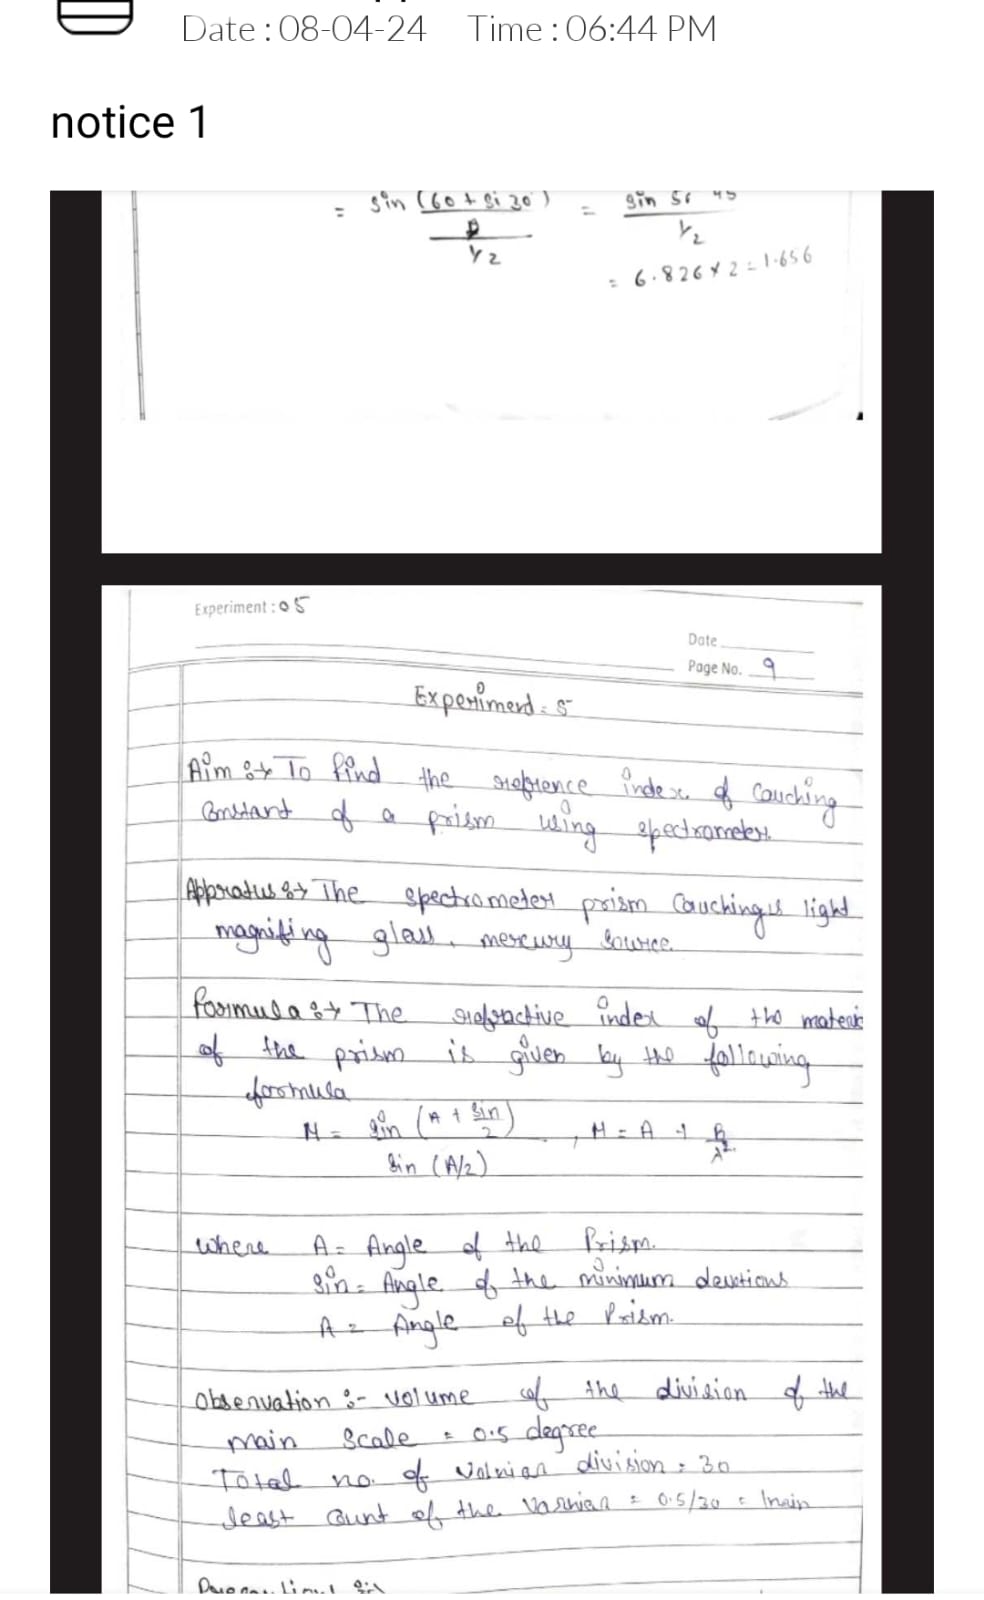 Date : 08-04-24 Time : 06:44 PM
notice 1
= sin (60 + Si 30') = sin 55 45
2
1/2 1/2
= 6.826 x 2 = 1.656
Experiment : 05
Date
Page No. 9
Experimend = 5
Aim :→ To find the refrence index of Cauching
Constant of a prism using spectrometer.
Appratus :→ The spectrometer prism Cauchingis light
magnifing glass, mercury source.
formula :→ The refractive index of the materic
of the prism is given by the following
formula
M = sin (A + Sin / 2) , M = A + B/λ².
Sin (A/2)
where A = Angle of the Prism.
Sin = Angle of the minimum devetions
A = Angle of the Prism.
Observation :- volume of the division of the
main Scale = 0.5 degree
Total no. of Volnian division = 30
least Count of the Varnian = 0.5/30 = 1main